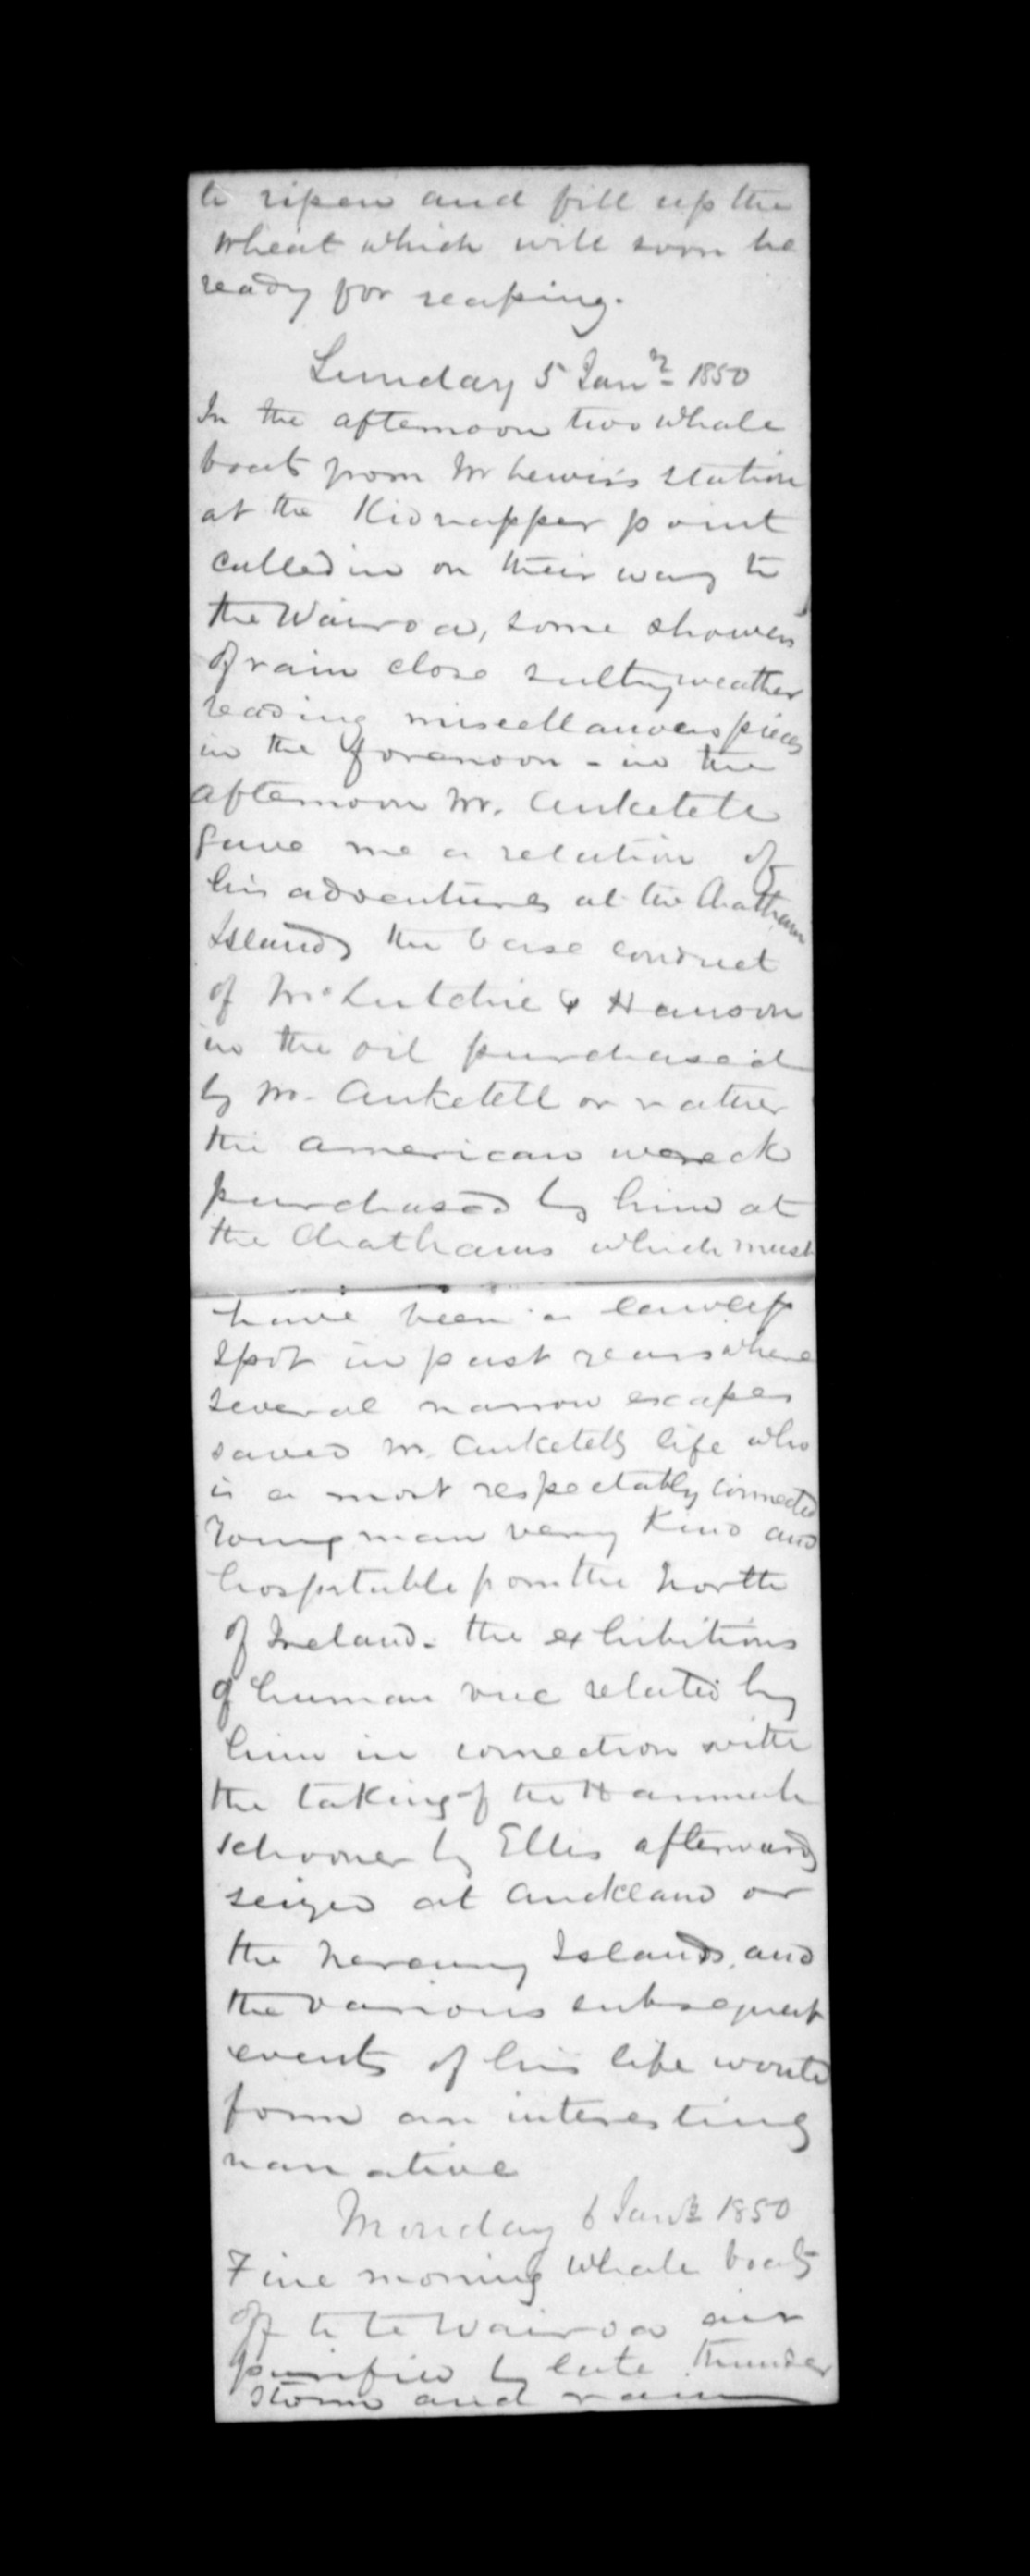 to ripen and fill up the
wheat which will soon be
ready for reaping.
Sunday 5 Janr 1850
In the afternoon two whale
boats from Mr Lewis's station
at the Kidnapper point
called in on their way to
the Wairoa, some showers
of rain close sultry weather
reading miscellaneous pieces
in the forenoon - in the
afternoon Mr. Anketell
gave me a relation of
his adventures at the Chatham
Islands the base conduct
of & Hanson
in the oil purchased
by Mr. Anketell or rather
the American wreck
purchased by him at
the Chathams which must
have been a lawless
spot in past years where
several narrow escapes
saved Mr. Anketells life who
is a most respectably connected
young man very kind and
hospitable from the North
of Ireland. the exhibitions
of human vice related by
him in connection with
the taking of the Hannah
schooner by Ellis afterwards
seized at Auckland or
the Islands, and
the various subsequent
events of his life would
form an interesting
narative
Monday 6 Janr 1850
Fine morning whale boats
off to te Wairoa air
purified by late thunder
storm and rain